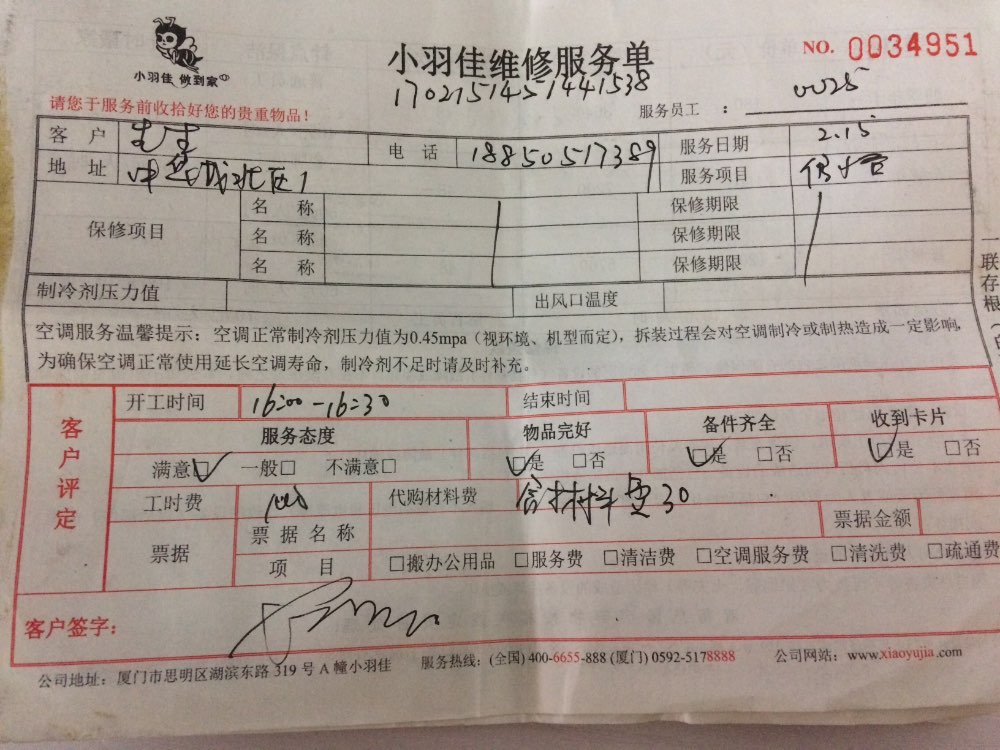 小羽佳 做到家
小羽佳维修服务单
NO. 0034951
170215145144 1538
请您于服务前收拾好您的贵重物品！
服务员工 ： 0025
客 户 先生 电 话 18850517389 服务日期 2.15
地 址 城北区1 服务项目
保修项目 名 称 保修期限
名 称 保修期限
名 称 保修期限
制冷剂压力值 出风口温度
空调服务温馨提示：空调正常制冷剂压力值为0.45mpa（视环境、机型而定），拆装过程会对空调制冷或制热造成一定影响，
为确保空调正常使用延长空调寿命，制冷剂不足时请及时补充。
一联存根
客户评定
开工时间 16:00-16:30 结束时间
服务态度 物品完好 备件齐全 收到卡片
满意□✓ 一般□ 不满意□ □✓是 □否 □✓是 □否 □✓是 □否
工时费 代购材料费 含材料 30
票据 票据名称 票据金额
项 目 □搬办公用品 □服务费 □清洁费 □空调服务费 □清洗费 □疏通费
客户签字：
公司地址：厦门市思明区湖滨东路 319 号 A 幢小羽佳 服务热线：(全国) 400-6655-888 (厦门) 0592-5178888 公司网站：www.xiaoyujia.com